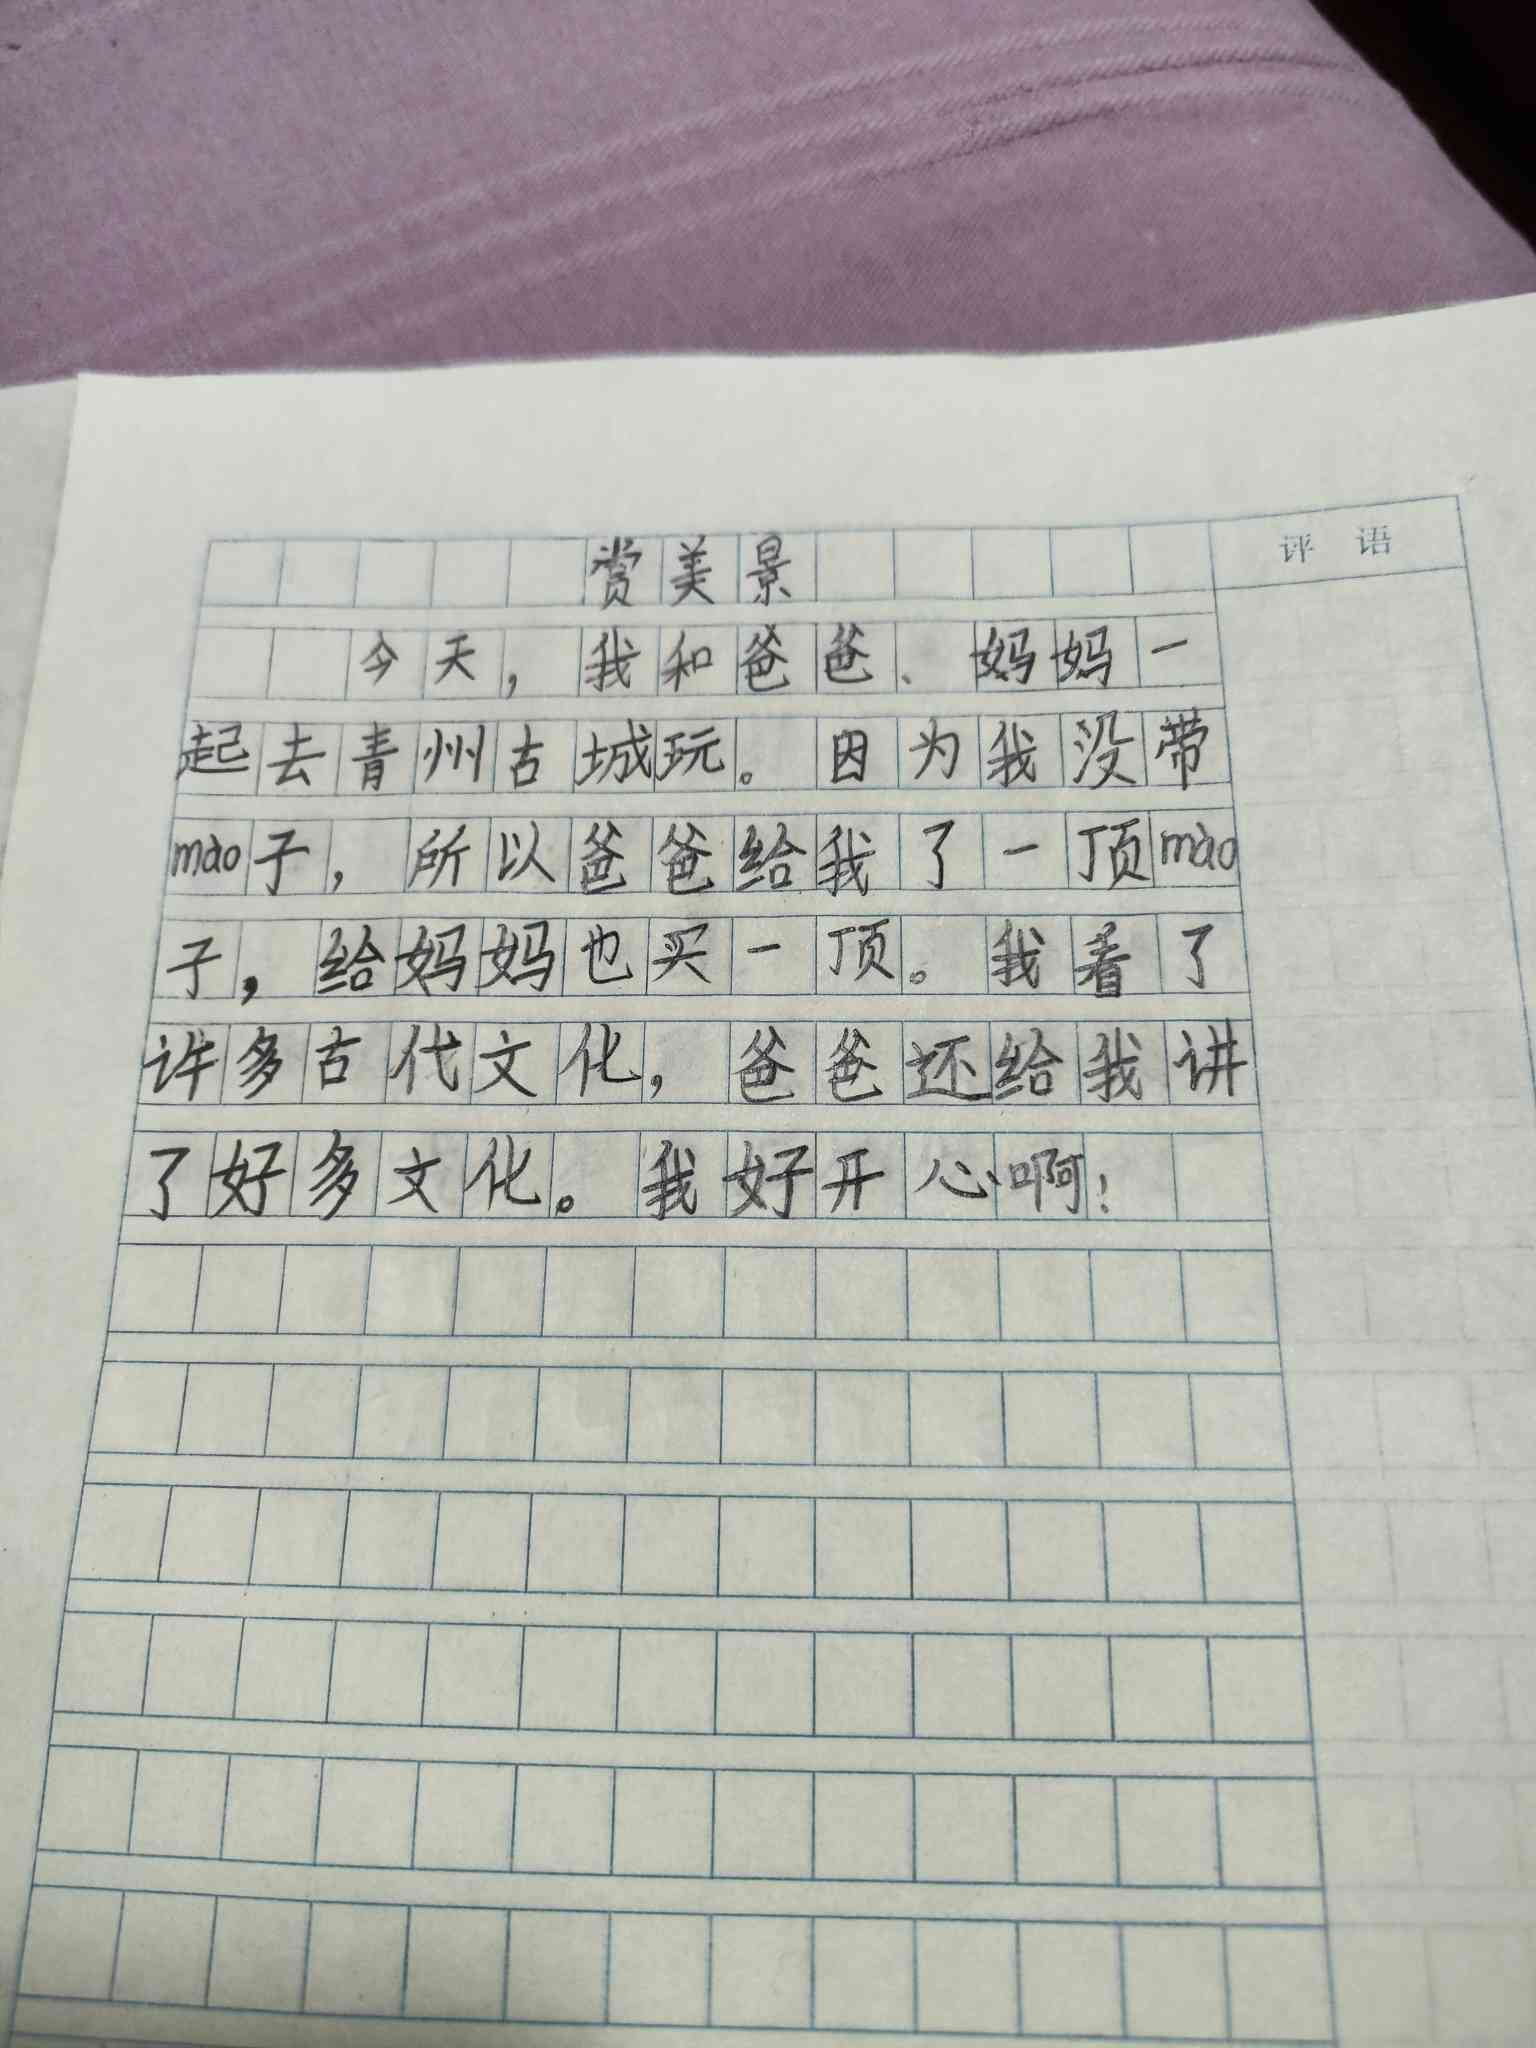 评 语
赏美景
今天，我和爸爸、妈妈一
起去青州古城玩。因为我没带
mào子，所以爸爸给我了一顶mào
子，给妈妈也买一顶。我看了
许多古代文化，爸爸还给我讲
了好多文化。我好开心啊！